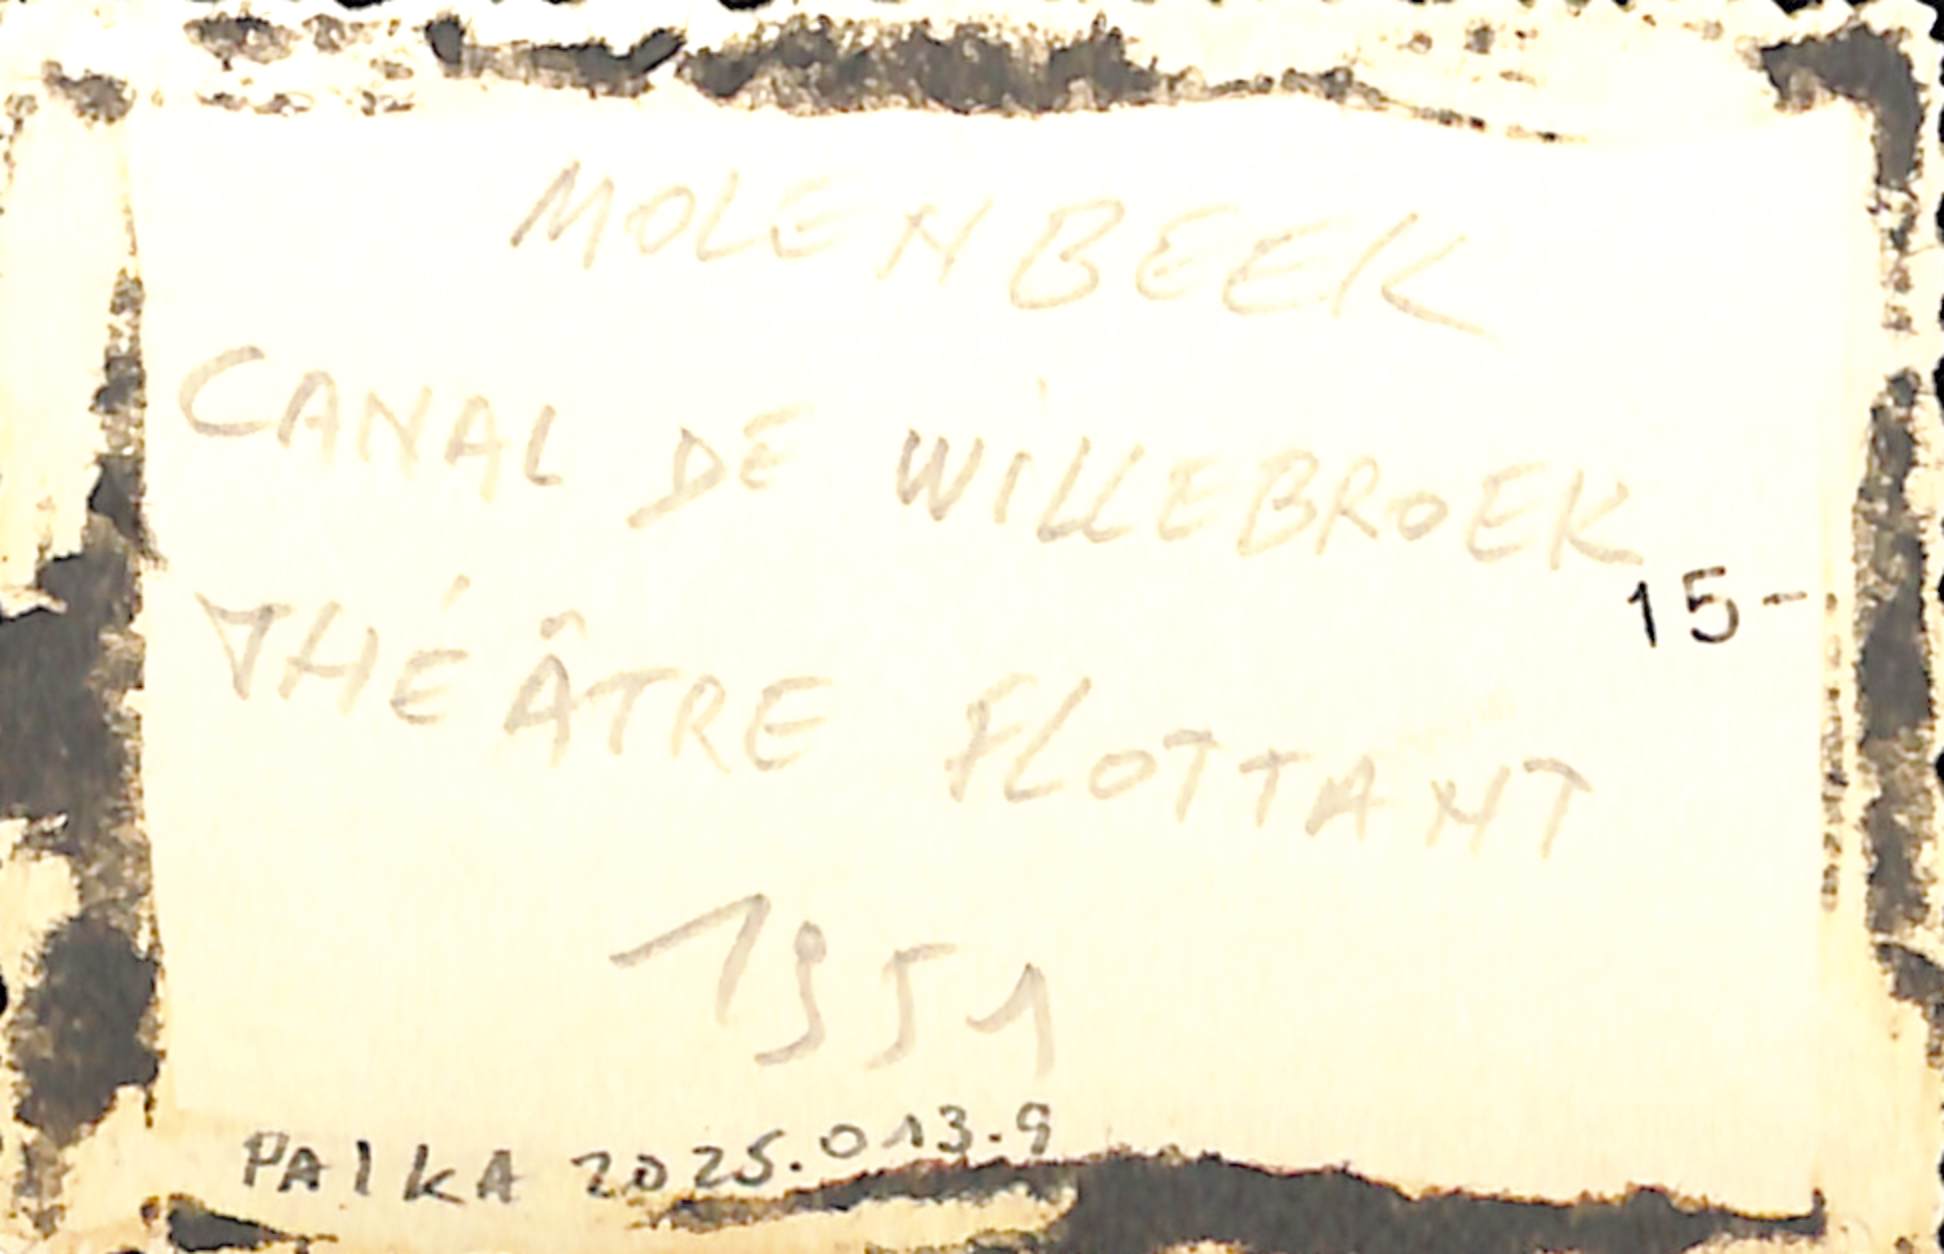 MOLENBEEK
CANAL DE WILLEBROEK
15-
THÉÂTRE FLOTTANT
1951
PAIKA 2025.013.9